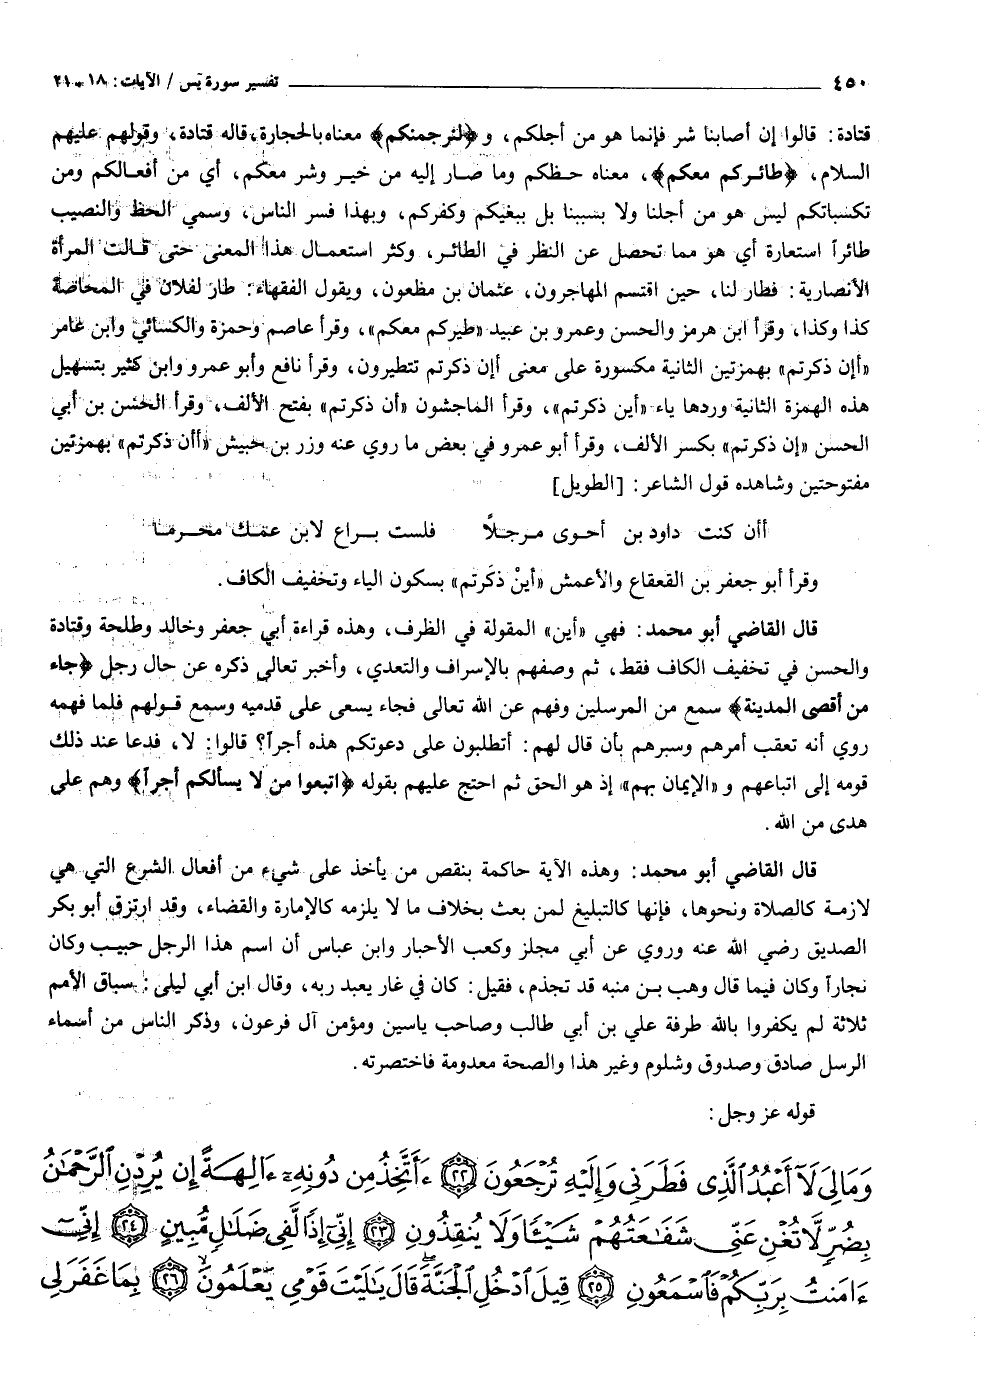 ٤٥٠ تفسير سورة يَس / الآيات: ١٨ - ٢١
قتادة: قالوا إن أصابنا شر فإنما هو من أجلكم، و ﴿لنرجمنكم﴾ معناه بالحجارة، قاله قتادة، وقولهم عليهم
السلام، ﴿طائركم معكم﴾، معناه حظكم وما صار إليه من خير وشر معكم، أي من أفعالكم ومن
تكسباتكم ليس هو من أجلنا ولا بسببنا بل ببغيكم وكفركم، وبهذا فسر الناس، وسمي الحظ والنصيب
طائراً استعارة أي هو مما تحصل عن النظر في الطائر، وكثر استعمال هذا المعنى حتى قالت المرأة
الأنصارية: فطار لنا، حين اقتسم المهاجرون، عثمان بن مظعون، ويقول الفقهاء: طار لفلان في المحاصة
كذا وكذا، وقرأ ابن هرمز والحسن وعمرو بن عبيد «طيركم معكم»، وقرأ عاصم وحمزة والكسائي وابن عامر
«أإن ذكرتم» بهمزتين الثانية مكسورة على معنى أإن ذكرتم تتطيرون، وقرأ نافع وأبو عمرو وابن كثير بتسهيل
هذه الهمزة الثانية وردها ياء «أين ذكرتم»، وقرأ الماجشون «أن ذكرتم» بفتح الألف، وقرأ الحسن بن أبي
الحسن «إن ذكرتم» بكسر الألف، وقرأ أبو عمرو في بعض ما روي عنه وزر بن حبيش «أأن ذكرتم» بهمزتين
مفتوحتين وشاهده قول الشاعر: [الطويل]
أأن كنت داود بن أحوى مرجلاً فلست براع لابن عمك محرما
وقرأ أبو جعفر بن القعقاع والأعمش «أينْ ذكَرتم» بسكون الياء وتخفيف الكاف.
قال القاضي أبو محمد: فهي «أين» المقولة في الظرف، وهذه قراءة أبي جعفر وخالد وطلحة وقتادة
والحسن في تخفيف الكاف فقط، ثم وصفهم بالإسراف والتعدي، وأخبر تعالى ذكره عن حال رجل ﴿جاء
من أقصى المدينة﴾ سمع من المرسلين وفهم عن الله تعالى فجاء يسعى على قدميه وسمع قولهم فلما فهمه
روي أنه تعقب أمرهم وسبرهم بأن قال لهم: أتطلبون على دعوتكم هذه أجراً؟ قالوا: لا، فدعا عند ذلك
قومه إلى اتباعهم و «الإيمان بهم» إذ هو الحق ثم احتج عليهم بقوله ﴿اتبعوا من لا يسألكم أجراً﴾ وهم على
هدى من الله.
قال القاضي أبو محمد: وهذه الآية حاكمة بنقص من يأخذ على شيء من أفعال الشرع التي هي
لازمة كالصلاة ونحوها، فإنها كالتبليغ لمن بعث بخلاف ما لا يلزمه كالإمارة والقضاء، وقد ارتزق أبو بكر
الصديق رضي الله عنه وروي عن أبي مجلز وكعب الأحبار وابن عباس أن اسم هذا الرجل حبيب وكان
نجاراً وكان فيما قال وهب بن منبه قد تجذم، فقيل: كان في غار يعبد ربه، وقال ابن أبي ليلى: سباق الأمم
ثلاثة لم يكفروا بالله طرفة علي بن أبي طالب وصاحب ياسين ومؤمن آل فرعون، وذكر الناس من أسماء
الرسل صادق وصدوق وشلوم وغير هذا والصحة معدومة فاختصرته.
قوله عز وجل:
وَمَالِىَ لَآ أَعْبُدُ ٱلَّذِى فَطَرَنِى وَإِلَيْهِ تُرْجَعُونَ ٢٢ ءَأَتَّخِذُ مِن دُونِهِۦٓ ءَالِهَةً إِن يُرِدْنِ ٱلرَّحْمَٰنُ
بِضُرٍّ لَّا تُغْنِ عَنِّى شَفَٰعَتُهُمْ شَيْـًٔا وَلَا يُنقِذُونِ ٢٣ إِنِّىٓ إِذًا لَّفِى ضَلَٰلٍ مُّبِينٍ ٢٤ إِنِّىٓ
ءَامَنتُ بِرَبِّكُمْ فَٱسْمَعُونِ ٢٥ قِيلَ ٱدْخُلِ ٱلْجَنَّةَ ۖ قَالَ يَٰلَيْتَ قَوْمِى يَعْلَمُونَ ٢٦ بِمَا غَفَرَ لِى